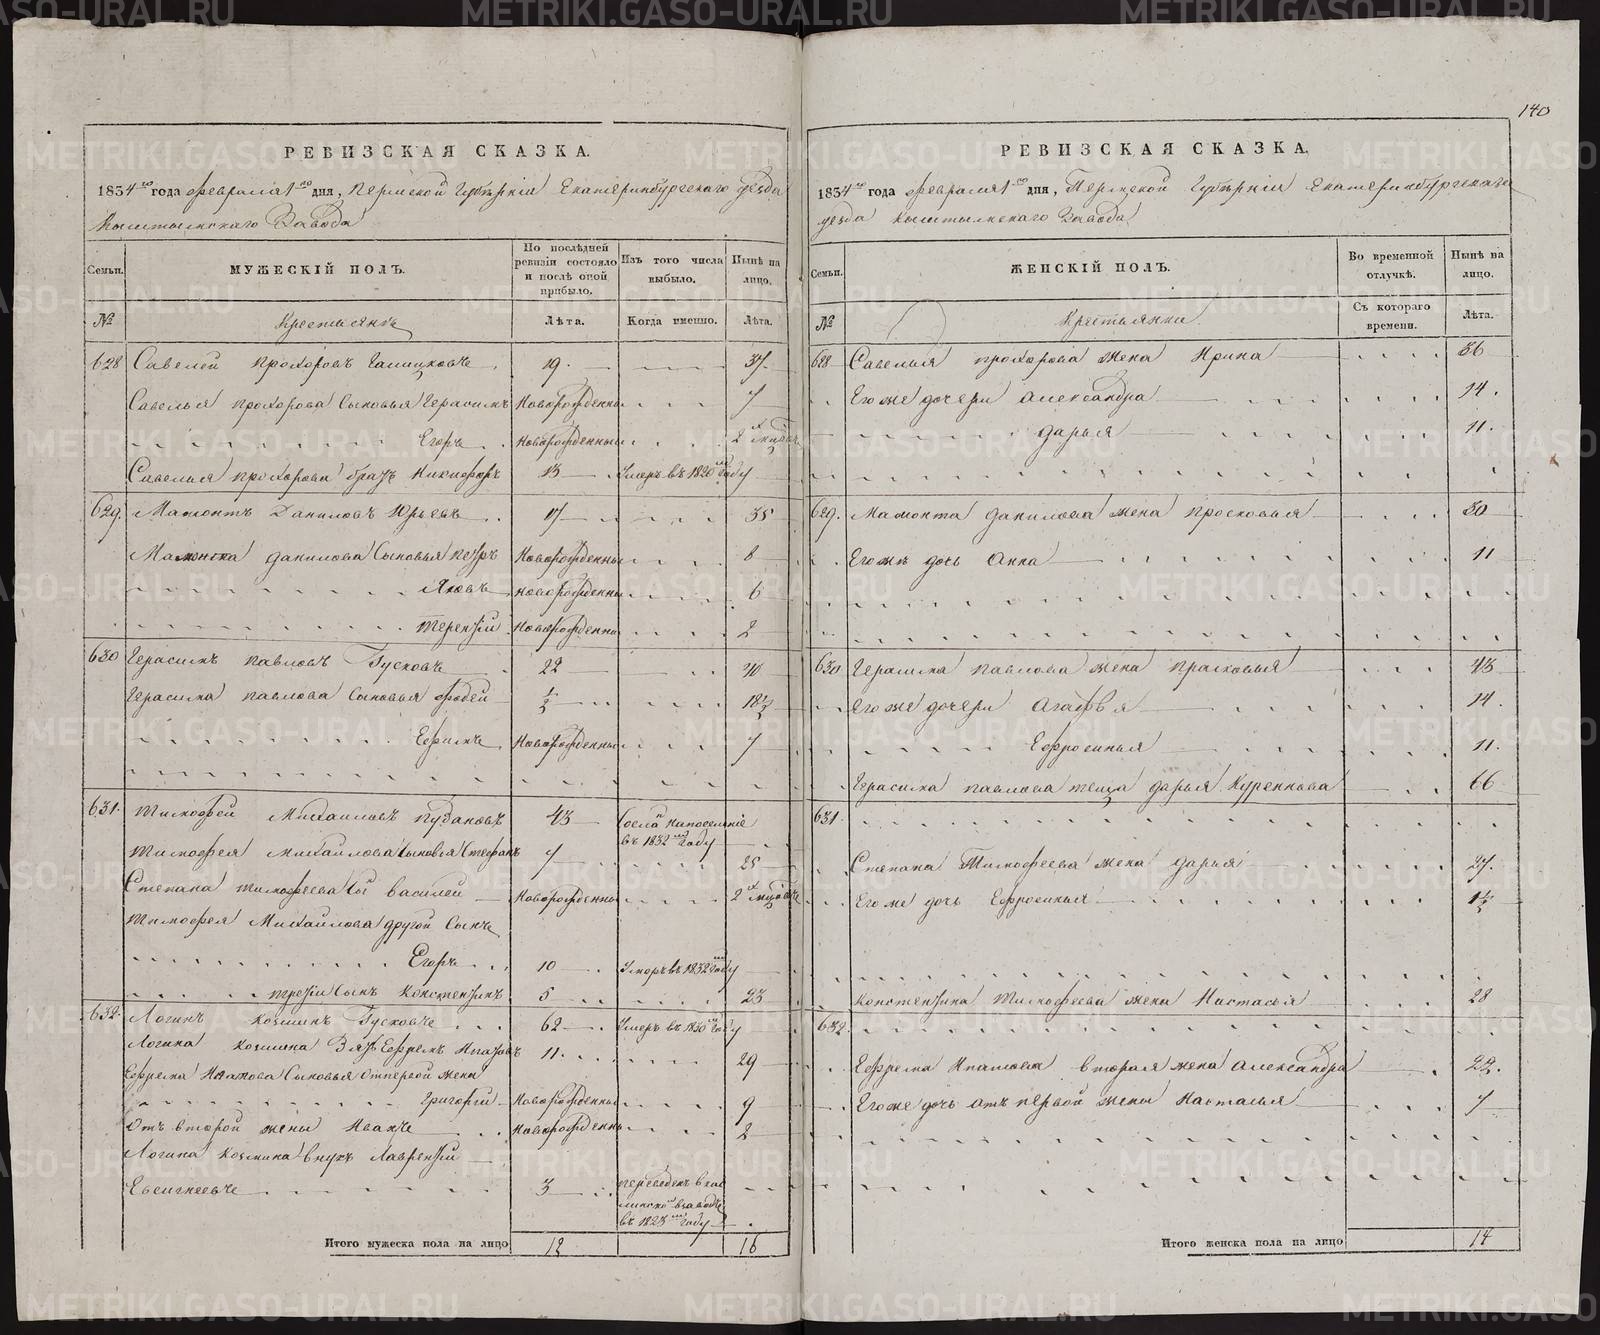 140
РЕВИЗСКАЯ СКАЗКА.
1834го года февраля 1го дня, Пермской Губернии Екатеринбургского уезда
Кыштымского Завода
Семьи.
МУЖЕСКІЙ ПОЛЪ.
По последней ревизіи состояло и послѣ оной прибыло.
Изъ того числа выбыло.
Нынѣ на лицо.
№
Крестьянъ
Лѣта.
Когда именно.
Лѣта.
628 Савелей Прохоровъ 19. 37.
Савелья Прохорова Сыновья Герасимъ Новорожденны 7
Егоръ Новорожденный 2х
Савелья Прохорова братъ Никифоръ 13 Умеръ въ 1820м году
629. Мамонтъ Даниловъ Юрьевъ 17 35
Мамонта Данилова Сыновья Петръ Новорожденны 8
Яковъ Новорожденны 6
Терентій Новорожденны 2
630 Герасимъ Павловъ Гусковъ 22 40
Герасима Павлова Сыновья Фадей 1/2 18 1/2
Ефимъ Новорожденны 7
631. Тимофей Михаиловъ Пузановъ 43 на поселение
въ 1832м году
Тимофея Михайлова Сыновья Стефанъ 7 25
Степана Тимофеева Сынъ Василей Новорожденны 2х
Тимофея Михайлова другой Сынъ
Егоръ 10 Умеръ въ 1832м году
третій Сынъ Констентинъ 5 23
632. Логинъ Козминъ Гусковъ 62 Умеръ въ 1830м году
Логина Козмина Зять Ефремъ Ипатовъ 11. 29
Ефрема Ипатова Сыновья от первой жены
Григорий Новорожденны 9
Отъ второй жены Иванъ Новорожденны 2
Логина Козмина внукъ Лаврентій
Евсигнеевъ 3 переведенъ в
заводъ
въ 1823м году
Итого мужеска пола на лицо 12 16
РЕВИЗСКАЯ СКАЗКА.
1834го года февраля 1го дня, Пермской Губерніи Екатеринбургскаго
уезда Кыштымскаго Завода
Семьи.
ЖЕНСКІЙ ПОЛЪ.
Во временной отлучкѣ.
Нынѣ на лицо.
№
Крестьянки
Съ котораго времени.
Лѣта.
628 Савелья Прохорова жена Ирина 36
Его же дочери Александра 14.
Дарья 11.
629. Мамонта Данилова жена Просковья 30
Его же дочь Анна 11
630 Герасима Павлова жена Прасковья 43
Его же дочери Агафья 14.
Ефросинья 11.
Герасима Павлова теща Дарья Куренкова 66
631.
Степана Тимофеева жена Дарья 27.
Его же дочь Ефросинья 1 1/2
Констентина Тимофеева жена Настасья 28
632.
Ефрема Ипатова вторая жена Александра 22.
Его же дочь отъ первой жены Настасья 7
Итого женска пола на лицо 14
METRIKI.GASO-URAL.RU